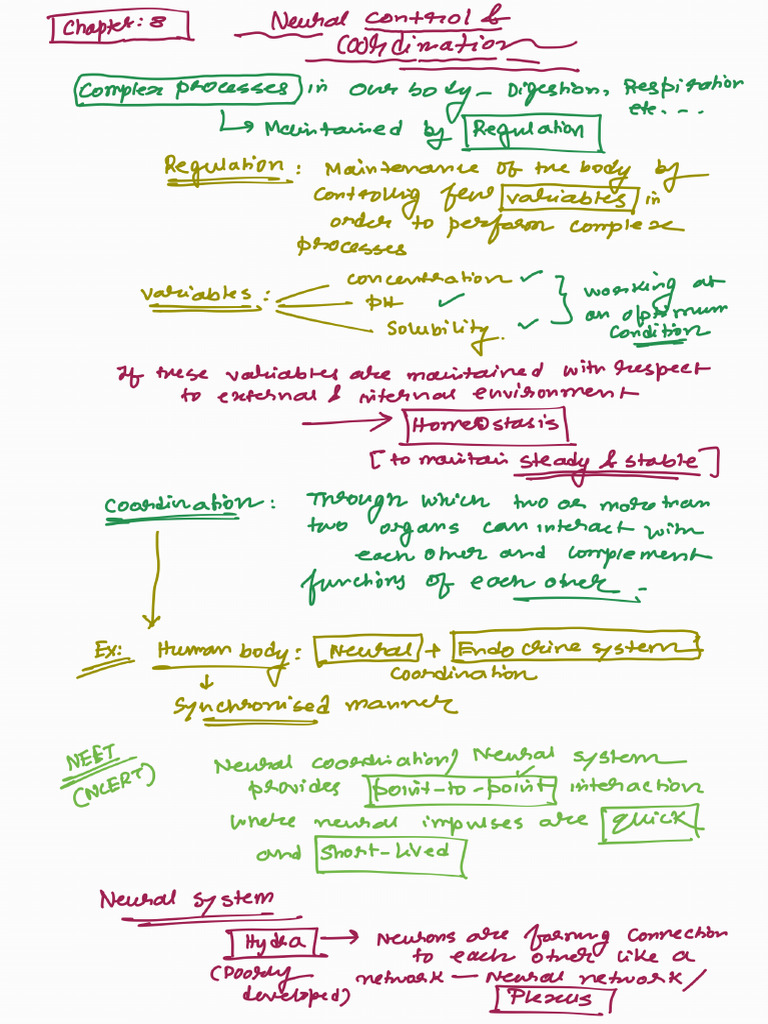 Chapter: 8
Neural control &
Coordination
Complex processes in our body - Digestion, Respiration
etc. ...
↳ Maintained by Regulation
Regulation : Maintenance of the body by
controlling few variables in
order to perform complex
processes
variables :
concentration ✓
PH ✓
Solubility. ✓
working at
an optimum
condition
If these variables are maintained with respect
to external & internal environment
→ Homeostasis
[to maintain steady & stable]
Coordination : Through which two or more than
two organs can interact with
each other and complement
functions of each other.
Ex: Human body : Neural + Endocrine system
coordination
↓
Synchronised manner
NEET
(NCERT)
Neural coordination/ Neural system
provides point-to-point interaction
where neural impulses are quick
and short-lived
Neural system
Hydra → Neurons are forming connection
to each other like a
(Poorly network — Neural network/
developed) Plexus